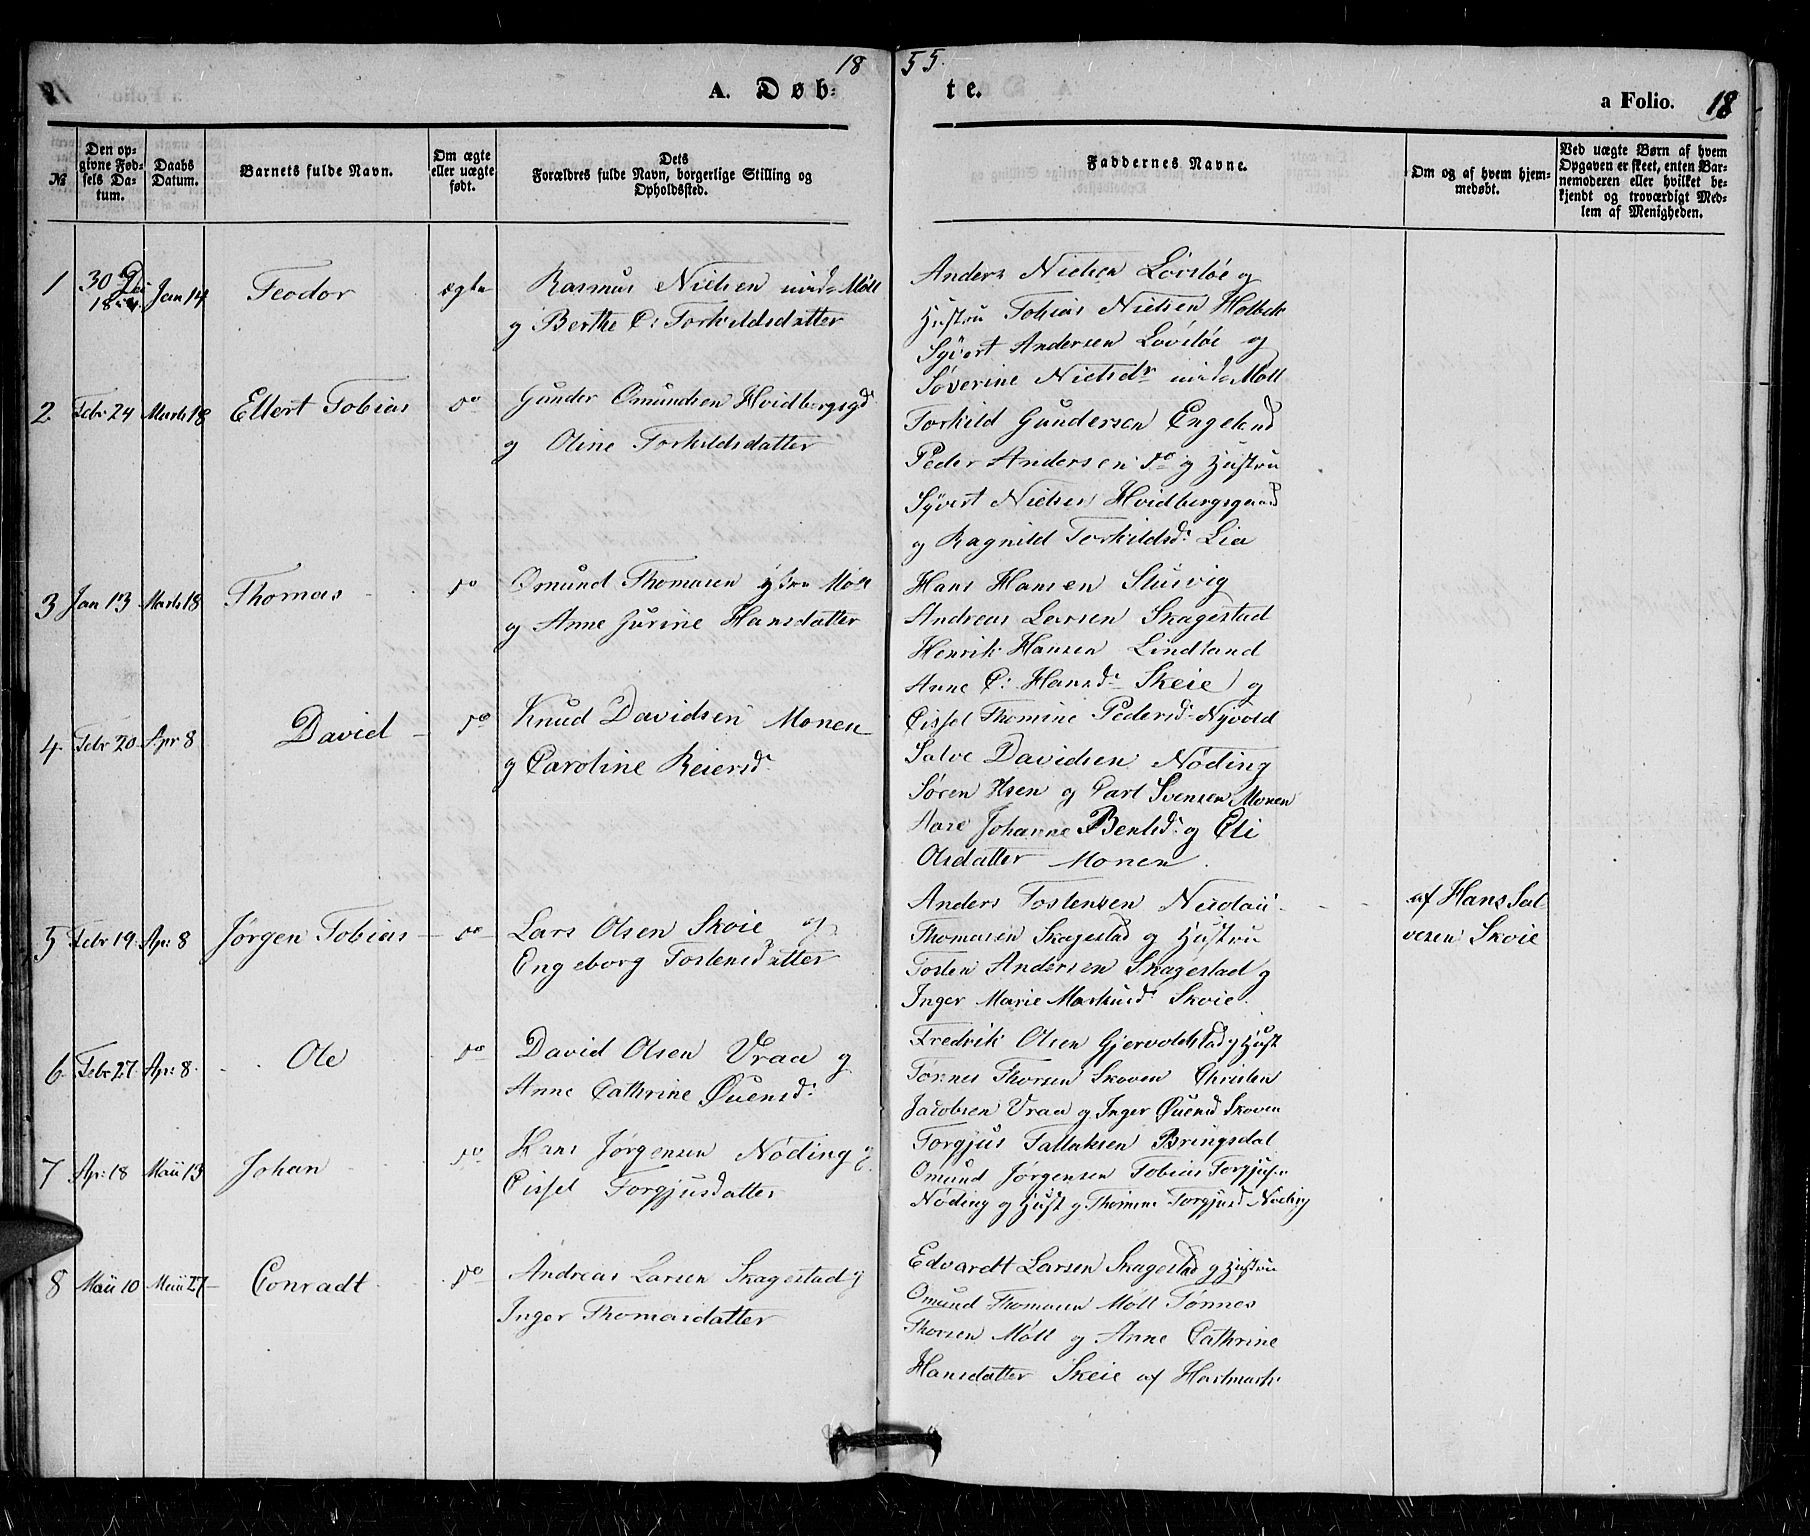 18 55.
A. Døb- te.
a Folio. 18
№
Den op-
givne Fød-
sels Da-
tum.
Daabs
Datum.
Barnets fulde Navn.
Om ægte
eller uægte
født.
Dets
Forældres fulde Navn, borgerlige Stilling og
Opholdssted.
Faddernes Navne.
Om og af hvem hjem-
medøbt.
Ved uægte Børn af hvem
Opgaven er skeet, enten Bar-
nemoderen eller hvilket be-
kjendt og troværdigt Med-
lem af Menigheden.
1 30 Dec 1854 Jan 14 Feodor ægte Rasmus Nielsen indr Møll
og Berthe C: Torkildsdatter
Anders Nielsen Lövslöe og
Hustru Tobias Nielsen Holbek
Syvert Andersen Lövslöe og
Söverine Nielsdr indr Møll
2. Febr 24 Marts 18 Ellert Tobias do Gunder Omundsen Hvidbergsgd
og Oline Torkildsdatter
Torkild Gundersen Engeland
Peder Andersen do og Hustru
Syvert Nielsen Hvidbergsgaard
og Ragnild Torkildsdr Lia
3 Jan 13 Marts 18 Thomas do Omund Thomasen ytre Møll
og Anne Gurine Hansdatter
Hans Hansen Stusvig
Andreas Larsen Skagestad
Henrik Hansen Lindland
Anne C: Hansdr Skeie og
Cissel Thomine Pedersd. Nyvold
4. Febr 20 Apr 8 David do Knud Davidsen Monen
og Caroline Reiersd.
Salve Davidsen Nöding
Sören Olsen og Carl Svensen Monen
Aase Johanne Bentsd. og Eli
Olsdatter Monen.
5 Febr 19 Apr: 8 Jørgen Tobias do Lars Olsen Skoie og
Engeborg Tostensdatter
Anders Tostensen Nicolai
Thomasen Skagestad og Hustru
Tosten Andersen Skagestad og
Inger Marie Markusd. Skoie.
af Hans Sal-
vesen Skoie
6. Febr 27. Apr: 8. Ole do David Olsen Vraa og
Anne Cathrine Øuensd.
Fredrik Olsen Gjervoldstad og Hust
Tönnes Thorsen Skoven Christen
Jacobsen Vraa og Inger Øuensd Skoven
7 Apr: 18 Maii 13 Johan do Hans Jørgensen Nöding og
Cissel Torgjusdatter
Torgjus Tallaksen Bringsdal
Omund Jørgensen Tobias Torgjusen
Nöding og Hust og Thomine Torgjusd Nöding
8 Maii 10 Maii 27 Conradt do Andreas Larsen Skagestad og
Inger Thomasdatter
Edvardt Larsen Skagestad og Hustru
Omund Thomasen Møll Tönnes
Thorsen Møll og Anne Cathrine
Hansdatter Skeie af Hartmark